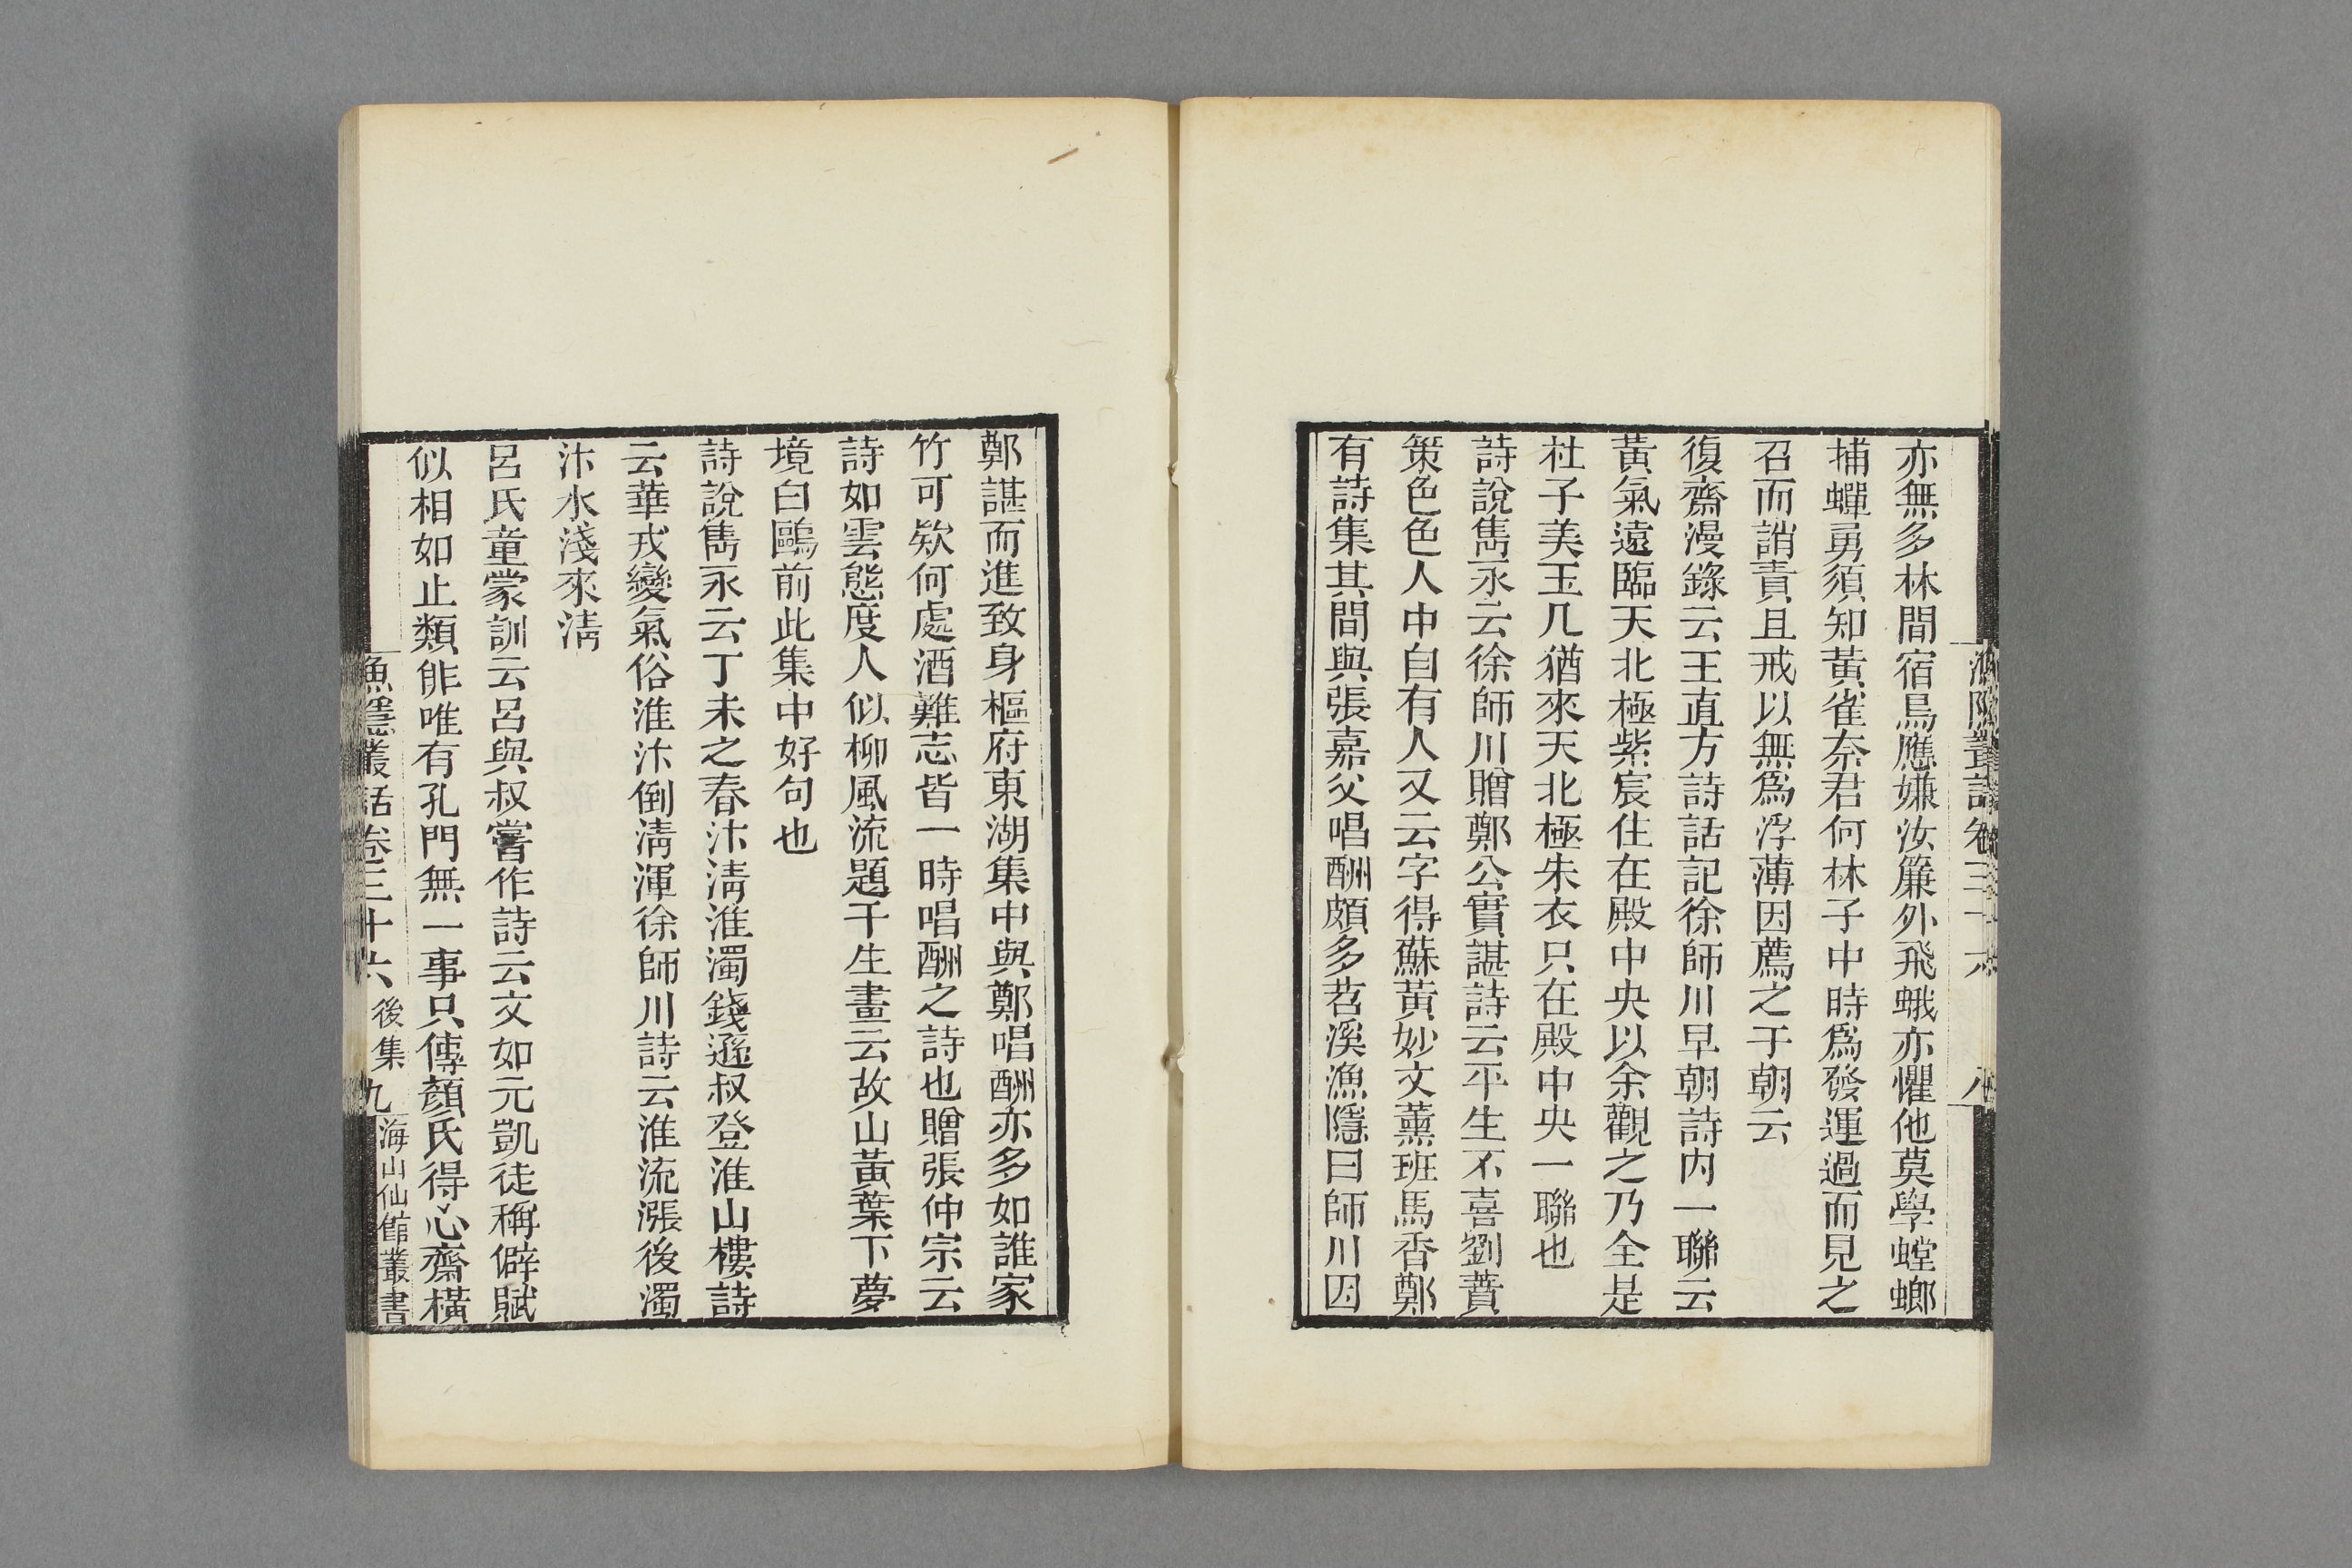 漁隱叢話卷三十六 八
亦無多林間宿鳥應嫌汝簾外飛蛾亦懼他莫學螳螂
捕蟬勇須知黃雀奈君何林子中時爲發運過而見之
召而誚責且戒以無爲浮薄因薦之于朝云
復齋漫錄云王直方詩話記徐師川早朝詩内一聯云
黃氣遠臨天北極紫宸住在殿中央以余觀之乃全是
杜子美玉几猶來天北極朱衣只在殿中央一聯也
詩說雋永云徐師川贈鄭公實諶詩云平生不喜劉蕡
策色色人中自有人又云字得蘇黃妙文薰班馬香鄭
有詩集其間與張嘉父唱酬頗多苕溪漁隱曰師川因
鄭諶而進致身樞府東湖集中與鄭唱酬亦多如誰家
竹可欵何處酒難志皆一時唱酬之詩也贈張仲宗云
詩如雲態度人似柳風流題干生畫云故山黃葉下夢
境白鷗前此集中好句也
詩說雋永云丁未之春汴淸淮濁錢遜叔登淮山樓詩
云華戎變氣俗淮汴倒淸渾徐師川詩云淮流漲後濁
汴水淺來淸
呂氏童蒙訓云呂與叔嘗作詩云文如元凱徒稱僻賦
似相如止類俳唯有孔門無一事只傳顏氏得心齋橫
漁隱叢話卷三十六 後集 九 海山仙館叢書